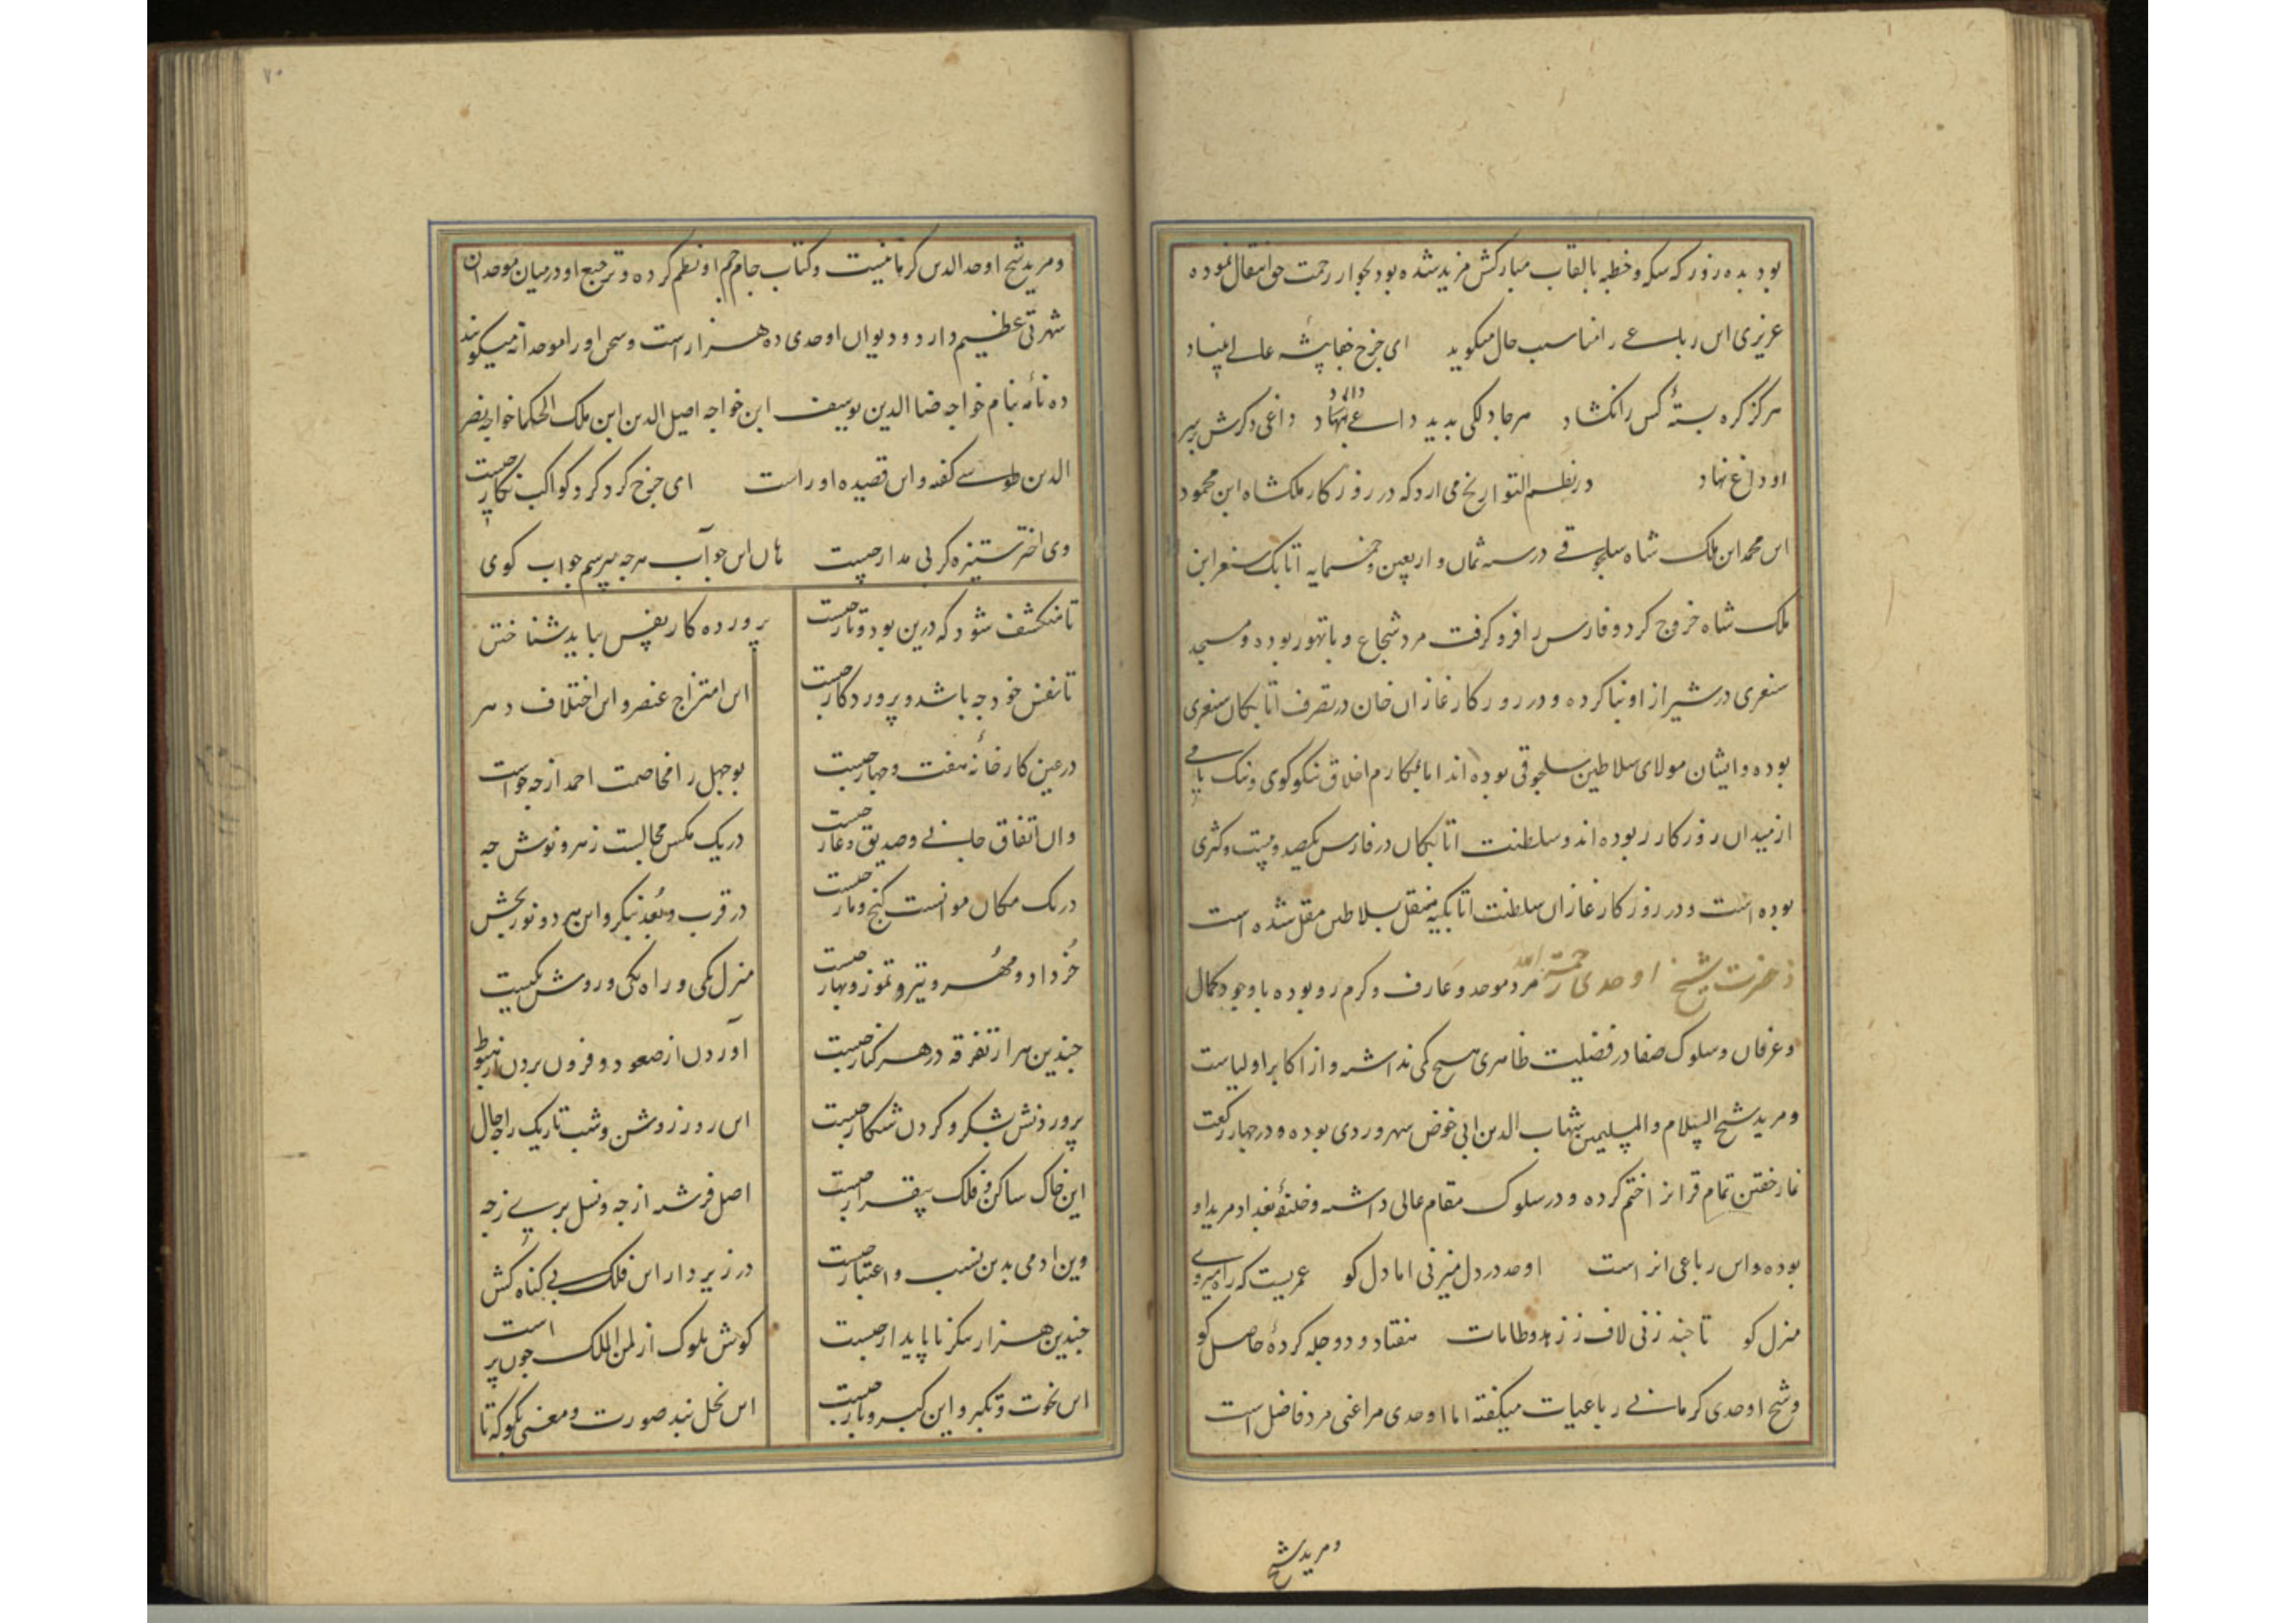 بود بده روز که سکه و خطبه بالقاب مبارکش مزید شده بود بجوار رحمت حق انتقال نموده
عزیزی این رباعی را مناسب حال میکوید ای چرخ جفا پیشه عالی بنیاد
هرکز کره بستهٔ کس را نکشاد هرجا دلکی بدید داغی بنهاد داغی دکرش بر سر
او داغ نهاد در نظم التواریخ می ارد که در روزکار ملکشاه ابن محمود
ابن محمد ابن ملک شاه سلجوقی در سنه ثمان و اربعین و خمسمایه اتابک سنقر ابن
ملک شاه خروج کرد و فارس را فرو کرفت مرد شجاع و با تهور بوده و مسجد
سنقری در شیراز او بنا کرده و در روزکار غازان خان در تصرف اتابکان سنقری
بوده و ایشان مولای سلاطین سلجوقی بوده اند اما بمکارم اخلاق نیکو کوی و نیک نامی
از میدان روزکار ربوده اند و سلطنت اتابکان در فارس یکصد و بیست و کثری
بوده است و در روزکار غازان سلطنت اتابکیه منتقل بسلاطین مغل شده است
ذ حضرت شیخ اوحدی رحمة الله مرد موحد و عارف و کرم رو بوده با وجود کمال
و عرفان و سلوک صفا در فضلیت ظاهری هیچ کمی نداشته و از اکابر اولیاست
و مرید شیخ السلام والمسلمین شهاب الدین ابی خفض سهروردی بوده و در چهار رکعت
نماز خفتن تمام قرانرا ختم کرده و در سلوک مقام عالی داشته و خلیفهٔ بغداد مرید او
بوده و این رباعی انراست اوحد در دل میزنی اما دل کو عمریست که راه میروی
منزل کو تا چند زنی لاف ز زهد و طامات هفتاد و دو چله کردهٔ حاصل کو
و شیخ اوحدی کرمانی رباعیات میکفته اما اوحدی مراغی مرد فاضل است
و مرید شیخ
۷۰
و مرید شیخ اوحد الدین کرمانیست و کتاب جام جم او نظم کرده و ترجیع او در میان موحدان
شهرتی عظیم دارد و دیوان اوحدی ده هزار است و سخن او را موحدانه میکویند
ده نامه بنام خواجه ضیا الدین یوسف ابن خواجه اصیل الدین ابن ملک الحکما خواجه نصر
الدین طوسی کفته و این قصیده او راست ای چرخ کرد کرد کواکب نکار چیست
وی اختر ستیزه کر بی مدار چیست هان این جوآب هرچه بپرسم جواب کوی
تا منکشف شود که درین بود و تار چیست پرورده کار نفس بباید شناختن
تا نفس خود چه باشد و پروردکار چیست این امتزاج عنصر و این اختلاف دهر
در عین کارخانهٔ هفت و چهار چیست بوجهل را مخاصمت احمد از چه خواست
وان اتفاق جانی و صدیق و غار چیست در یک مکس مجالست زهر و نوش چه
در یک مکان موانست کنج و مار چیست در قرب و بُعد نیکر و این هر دو نور بخش
خُرداد و مهر و تیر و تموز و بهار چیست منزل یکی و راه یکی و روش یکیست
چندین هزار تفرقه در هر کنار چیست آوردن از صعود و فرو بردن از هبوط
پروردنش بشکر و کردن شکار چیست این روز روشن و شب تاریک را مجال
این خاک ساکن و فلک بیقرار چیست اصل فرشته از چه و نسل پری ز چه
وین ادمی بدین نسب و اعتبار چیست در زیر دار این فلک بی کناه کش
چندین هزار سکر ناپایدار چیست کوش ملوک از لمن الملک چون پر است
این نخوت و تکبر و این کیر و دار چیست این نخل بند صورت و معنی بکو که تا